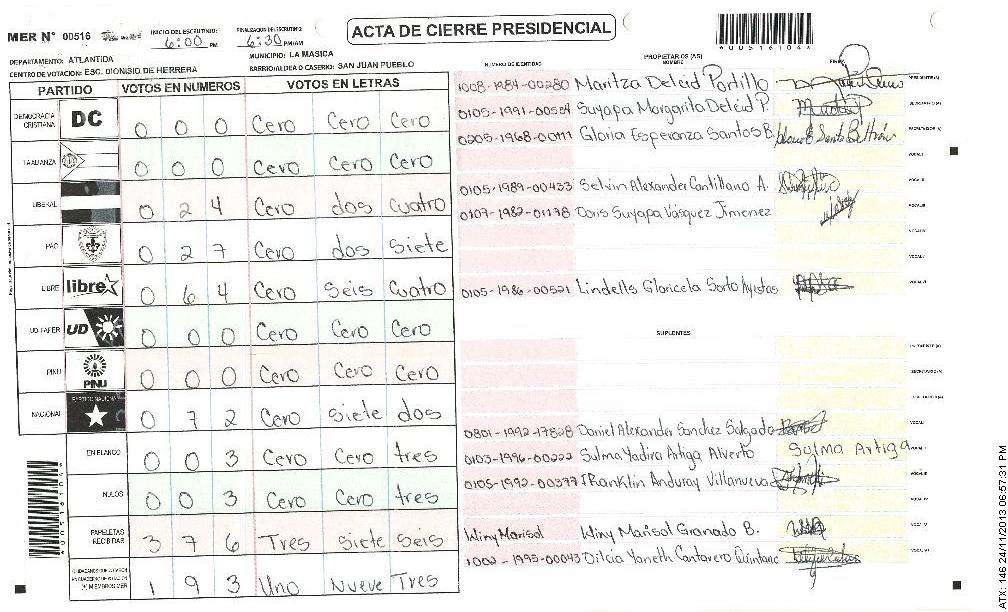 ACTA DE CIERRE PRESIDENCIAL
MER N° 00516
INICIO DEL ESCRUTINIO: 6:00 PM
FINALIZACION DEL ESCRUTINIO: 6:30 PM/AM
DEPARTAMENTO: ATLANTIDA
MUNICIPIO: LA MASICA
CENTRO DE VOTACION: ESC. DIONISIO DE HERRERA
BARRIO/ALDEA O CASERIO: SAN JUAN PUEBLO
PARTIDO VOTOS EN NUMEROS VOTOS EN LETRAS
DEMOCRACIA CRISTIANA DC 0 0 0 Cero Cero Cero
LA ALIANZA 0 0 0 Cero Cero Cero
LIBERAL 0 2 4 Cero dos cuatro
PAC 0 2 7 Cero dos siete
LIBRE libre 0 6 4 Cero Seis Cuatro
UD-FAPER UD 0 0 0 Cero Cero Cero
PINU PINU 0 0 0 Cero Cero Cero
NACIONAL PARTIDO NACIONAL 0 7 2 Cero siete dos
EN BLANCO 0 0 3 Cero Cero tres
NULOS 0 0 3 Cero Cero tres
PAPELETAS RECIBIDAS 3 7 6 Tres siete seis
1 9 3 Uno Nueve Tres
A00516104
NUMERO DE IDENTIDAD PROPIETARIOS (AS) NOMBRE FIRMA
1008-1984-00280 Maritza Delcid Portillo
0105-1991-00584 Suyapa Margarita Delcid P
0205-1968-00111 Gloria Esperanza Santos B.
0105-1989-00433 Selvin Alexander Cantillano A.
0107-1982-01178 Doris Suyapa Vásquez Jimenez
0105-1986-00521 Lindells Gloricela Sorto Ayestas
SUPLENTES
0801-1992-17828 Daniel Alexander Sanchez Salgado
0103-1996-00222 Sulma Yadira Artiga Alverto Sulma Artiga
0105-1992-00377 Franklin Anduray Villanueva
Winy Marisol Winy Marisol Granado B.
1002-1995-00043 Dilcia Yaneth Cantarero Quintano
ATX: 146 24/11/2013 06:57:31 PM